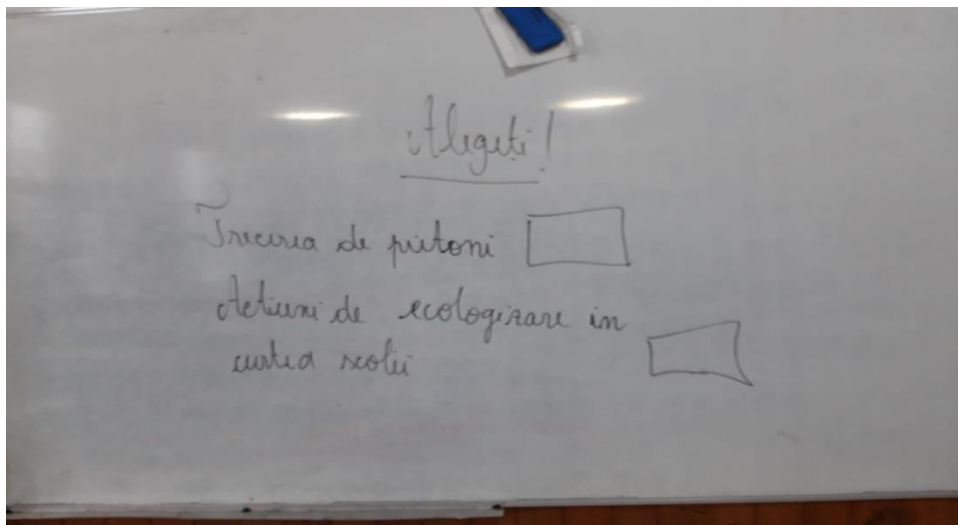 Alegeți!
Trecerea de pietoni
Actiuni de ecologizare in
curtea scolii